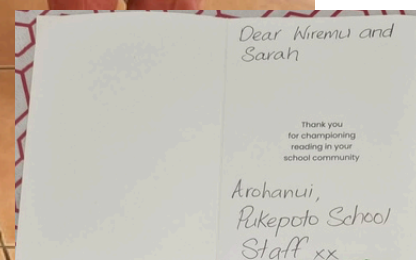 Dear Wiremu and
Sarah
Thank you
for championing
reading in your
school community
Arohanui,
Pukepoto School
Staff xx